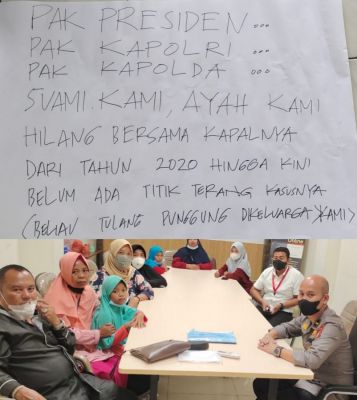 PAK PRESIDEN...
PAK KAPOLRI ...
PAK KAPOLDA ...
SUAMI.KAMI, AYAH KAMI
HILANG BERSAMA KAPALNYA
DARI TAHUN 2020 HINGGA KINI
BELUM ADA TITIK TERANG KASUSNYA
(BELIAU TULANG PUNGGUNG DIKELUARGA KAMI)